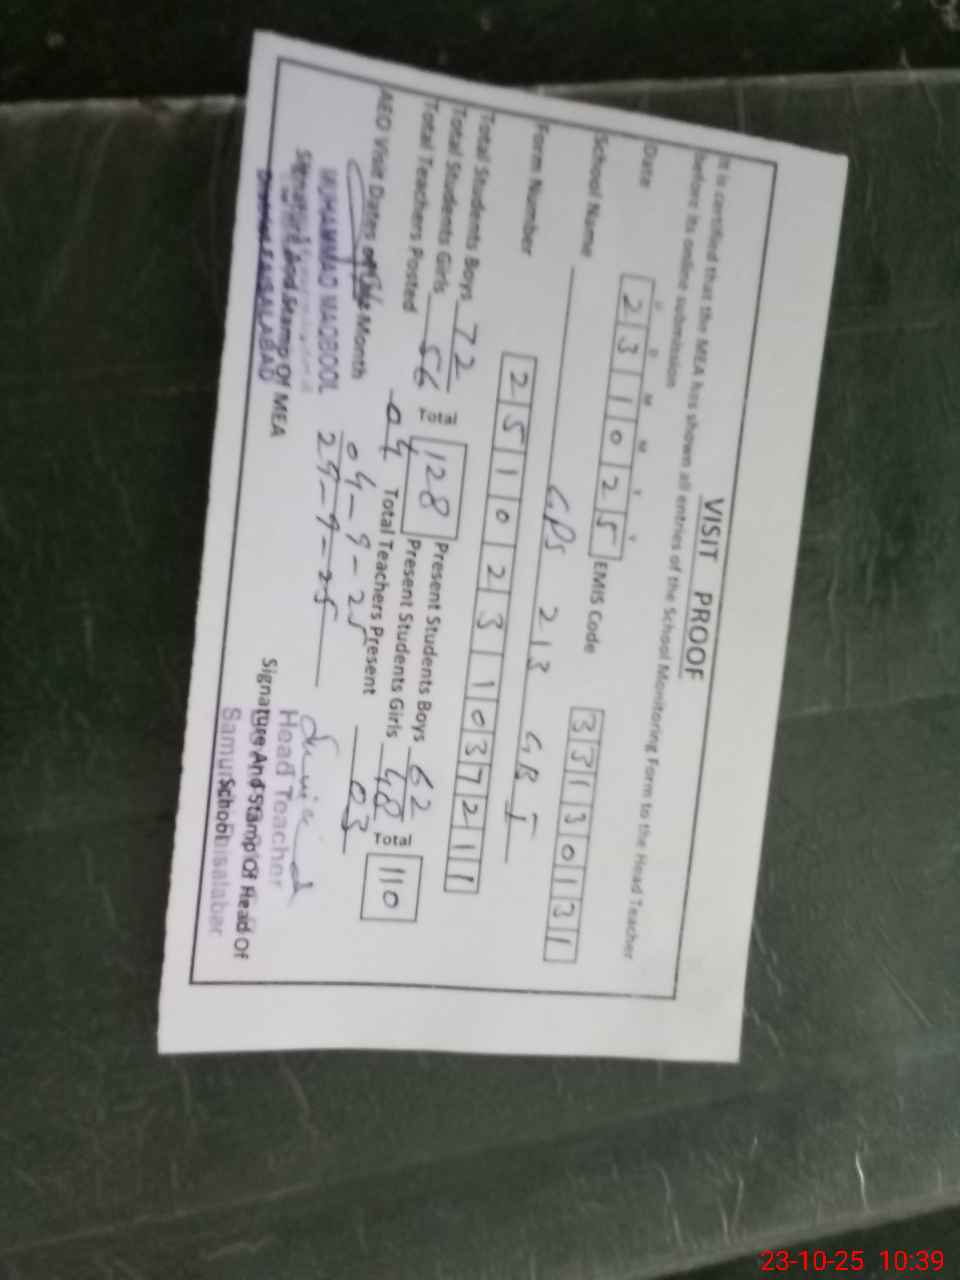 VISIT PROOF
It is certified that the MEA has shown all entries of the School Monitoring Form to the Head Teacher
before its online submission
D D M M Y Y
Date 2 3 1 0 2 5 EMIS Code 3 3 1 3 0 1 3 1
School Name GPS 213 GB I
Form Number 2 5 1 0 2 3 1 0 3 7 2 1 1
Total Students Boys 72 Present Students Boys 62
Total Students Girls 56 Total 128 Present Students Girls 48 Total 110
Total Teachers Posted 04 Total Teachers Present 03
AEO Visit Dates of the Month 04-9-25
29-9-25
MUHAMMAD MAQBOOL
Signature And Stamp Of MEA
District FAISALABAD
Head Teacher
Signature And Stamp Of Head Of
School
23-10-25 10:39